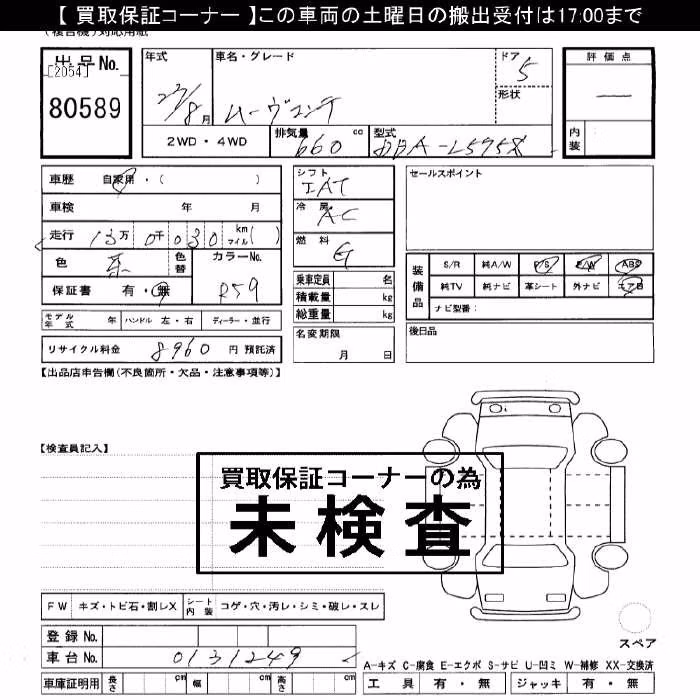 【 買取保証コーナー 】この車両の土曜日の搬出受付は17:00まで
(複合機)対応用紙
出品No.
[2054]
80589
年式
23/8月
車名・グレード
ムーヴコンテ
ドア 5
形状
評価点
―
内装
2WD・4WD
排気量 660 cc
型式 DBA-L575S
車歴 自家用・( )
車検 年 月
走行 13万 0千 030 km マイル( )
色 茶
色替
カラーNo. R59
保証書 有・無
モデル年式 年 ハンドル 左・右 ディーラー・並行
リサイクル料金 8960 円 預託済
シフト IAT
冷房 AC
燃料 G
乗車定員 名
積載量 kg
総重量 kg
名変期限
月 日
セールスポイント
装備品
S/R 純A/W P/S P/W ABS
純TV 純ナビ 革シート 外ナビ エアB
ナビ型番:
後日品
【出品店申告欄(不良箇所・欠品・注意事項等)】
【検査員記入】
買取保証コーナーの為
未検査
FW キズ・トビ石・割レX シート内装 コゲ・穴・汚レ・シミ・破レ・スレ
登録No.
車台No. 0131249
車庫証明用 長さ cm 幅 cm 高さ cm
スペア
A-キズ C-腐食 E-エクボ S-サビ U-凹ミ W-補修 XX-交換済
工具 有・無 ジャッキ 有・無